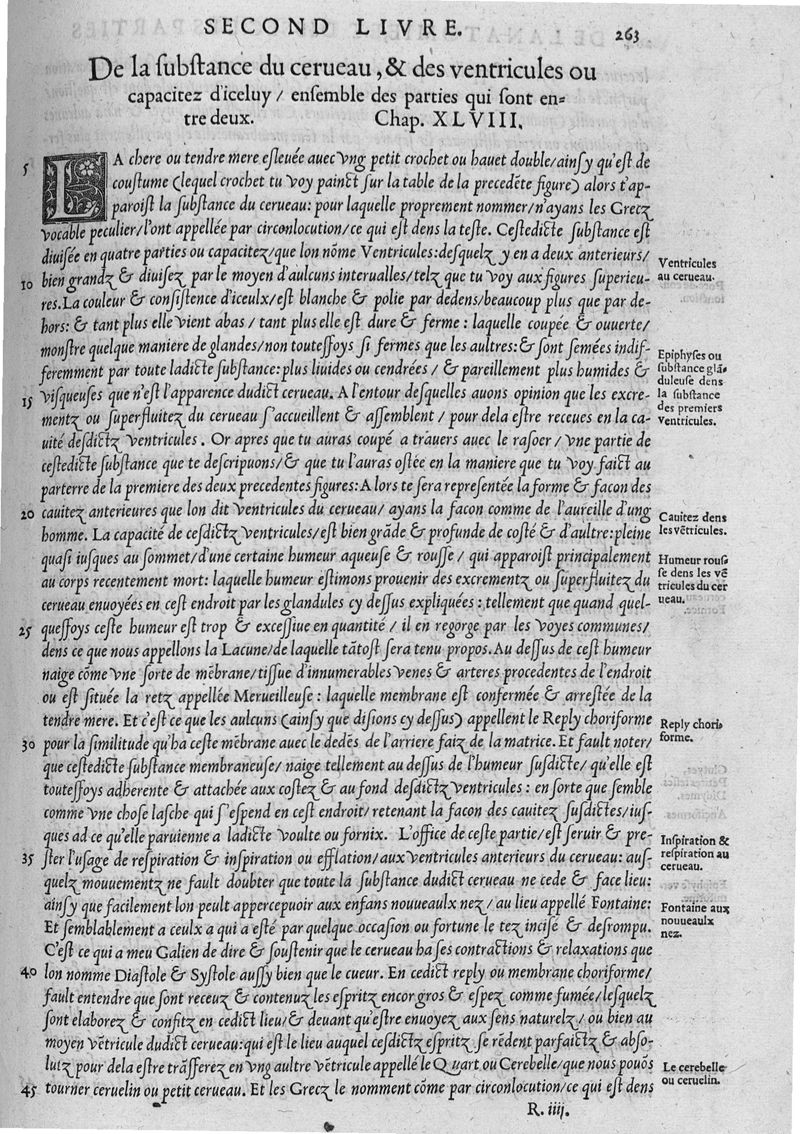 SECOND LIVRE.
263
De la substance du cerueau, & des ventricules ou
capacitez d'iceluy / ensemble des parties qui sont en=
tre deux. Chap. XLVIII.
5
LA chere ou tendre mere esleuée auec vng petit crochet ou hauet double/ainsy qu'est de
coustume (lequel crochet tu voy painct sur la table de la precedẽte figure) alors t'ap-
paroist la substance du cerueau: pour laquelle proprement nommer/n'ayans les Grecz
vocable peculier/l'ont appellée par circonlocution/ce qui est dens la teste. Cestedicte substance est
diuisée en quatre parties ou capacitez/que lon nõme Ventricules:desquelz y en a deux anterieurs/
Ventricules
au cerueau.
10 bien grandz & diuisez par le moyen d'aulcuns interualles/telz que tu voy aux figures superieu-
res. La couleur & consistence d'iceulx/est blanche & polie par dedens/beaucoup plus que par de-
hors: & tant plus elle vient abas / tant plus elle est dure & ferme : laquelle coupée & ouuerte/
monstre quelque maniere de glandes/non toutesfoys si fermes que les aultres:& sont semées indif-
Epiphyses ou
substance glã=
duleuse dens
la substance
des premiers
ventricules.
feremment par toute ladicte substance:plus liuides ou cendrées / & pareillement plus humides &
15 visqueuses que n'est l'apparence dudict cerueau. A l'entour desquelles auons opinion que les excre-
mentz ou superfluitez du cerueau s'accueillent & assemblent / pour dela estre receues en la ca-
uité desdictz ventricules. Or apres que tu auras coupé a trauers auec le rasoer / vne partie de
cestedicte substance que te descripuons/& que tu l'auras ostée en la maniere que tu voy faict au
parterre de la premiere des deux precedentes figures: A lors te sera representée la forme & facon des
20 cauitez anterieures que lon dit ventricules du cerueau / ayans la façon comme de l'aureille d'ung
Cauitez dens
les vẽtricules.
homme. La capacité de cesdictz ventricules/est bien grãde & profunde de costé & d'aultre:pleine
quasi iusques au sommet/d'une certaine humeur aqueuse & rousse / qui apparoist principalement
Humeur rous=
se dens les vẽ
tricules du cer
ueau.
au corps recentement mort: laquelle humeur estimons prouenir des excrementz ou superfluitez du
cerueau enuoyées en cest endroit par les glandules cy dessus expliquées : tellement que quand quel-
25 quesfoys ceste humeur est trop & excessiue en quantité / il en regorge par les voyes communes/
dens ce que nous appellons la Lacune/de laquelle tãtost sera tenu propos. Au dessus de cest humeur
naige cõme vne sorte de mẽbrane/tissue d'innumerables venes & arteres procedentes de l'endroit
ou est située la retz appellée Merueilleuse : laquelle membrane est confermée & arrestée de la
tendre mere. Et c'est ce que les aulcuns (ainsy que disions cy dessus) appellent le Reply choriforme
Reply chori=
forme.
30 pour la similitude qu'ha ceste mẽbrane auec le dedẽs de l'arriere faiz de la matrice. Et fault noter/
que cestedicte substance membraneuse/ naige tellement au dessus de l'humeur susdicte/ qu'elle est
toutesfoys adherente & attachée aux costez & au fond desdictz ventricules : en sorte que semble
comme vne chose lasche qui s'espend en cest endroit/ retenant la facon des cauitez susdictes/ius-
ques ad ce qu'elle paruienne a ladicte voulte ou fornix. L'office de ceste partie/est seruir & pre-
Inspiration &
respiration au
cerueau.
35 ster l'usage de respiration & inspiration ou efflation/aux ventricules anterieurs du cerueau: aus-
quelz mouuementz ne fault doubter que toute la substance dudict cerueau ne cede & face lieu:
ainsy que facilement lon peult appercepuoir aux enfans nouueaulx nez/ au lieu appellé Fontaine:
Fontaine aux
nouueaulx
nez.
Et semblablement a ceulx a qui a esté par quelque occasion ou fortune le tez incisé & desrompu.
C'est ce qui a meu Galien de dire & soustenir que le cerueau ha ses contractions & relaxations que
40 lon nomme Diastole & Systole aussy bien que le cueur. En cedict reply ou membrane choriforme/
fault entendre que sont receuz & contenuz les espritz encor gros & espez comme fumée/lesquelz
sont elaborez & confitz en cedict lieu/ & deuant qu'estre enuoyez aux sens naturelz / ou bien au
moyen vẽtricule dudict cerueau:qui est le lieu auquel cesdictz espritz se rẽdent parfaictz & abso-
lutz pour dela estre trãsferez en vng aultre vẽtricule appellé le Quart ou Cerebelle/que nous pouõs
Le cerebelle
ou ceruelin.
45 tourner ceruelin ou petit cerueau. Et les Grecz le nomment cõme par circonlocution/ce qui est dens
R. iiij.